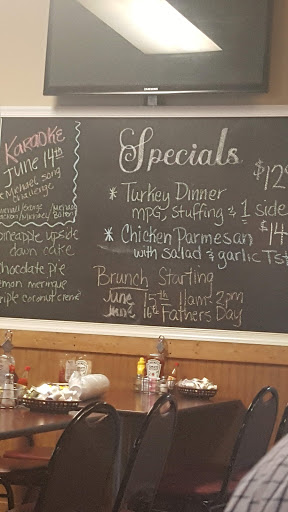 SAMSUNG
KARAOKE
June 14th
Michael song
Challenge
pineapple upside
down cake
chocolate pie
lemon meringue
triple coconut creme
Specials
$12
* Turkey Dinner
mpg, stuffing & 1 side
$14
* Chicken Parmesan
with salad & garlic Tst
Brunch Starting
June 15th 11am-2pm
June 16th Fathers Day